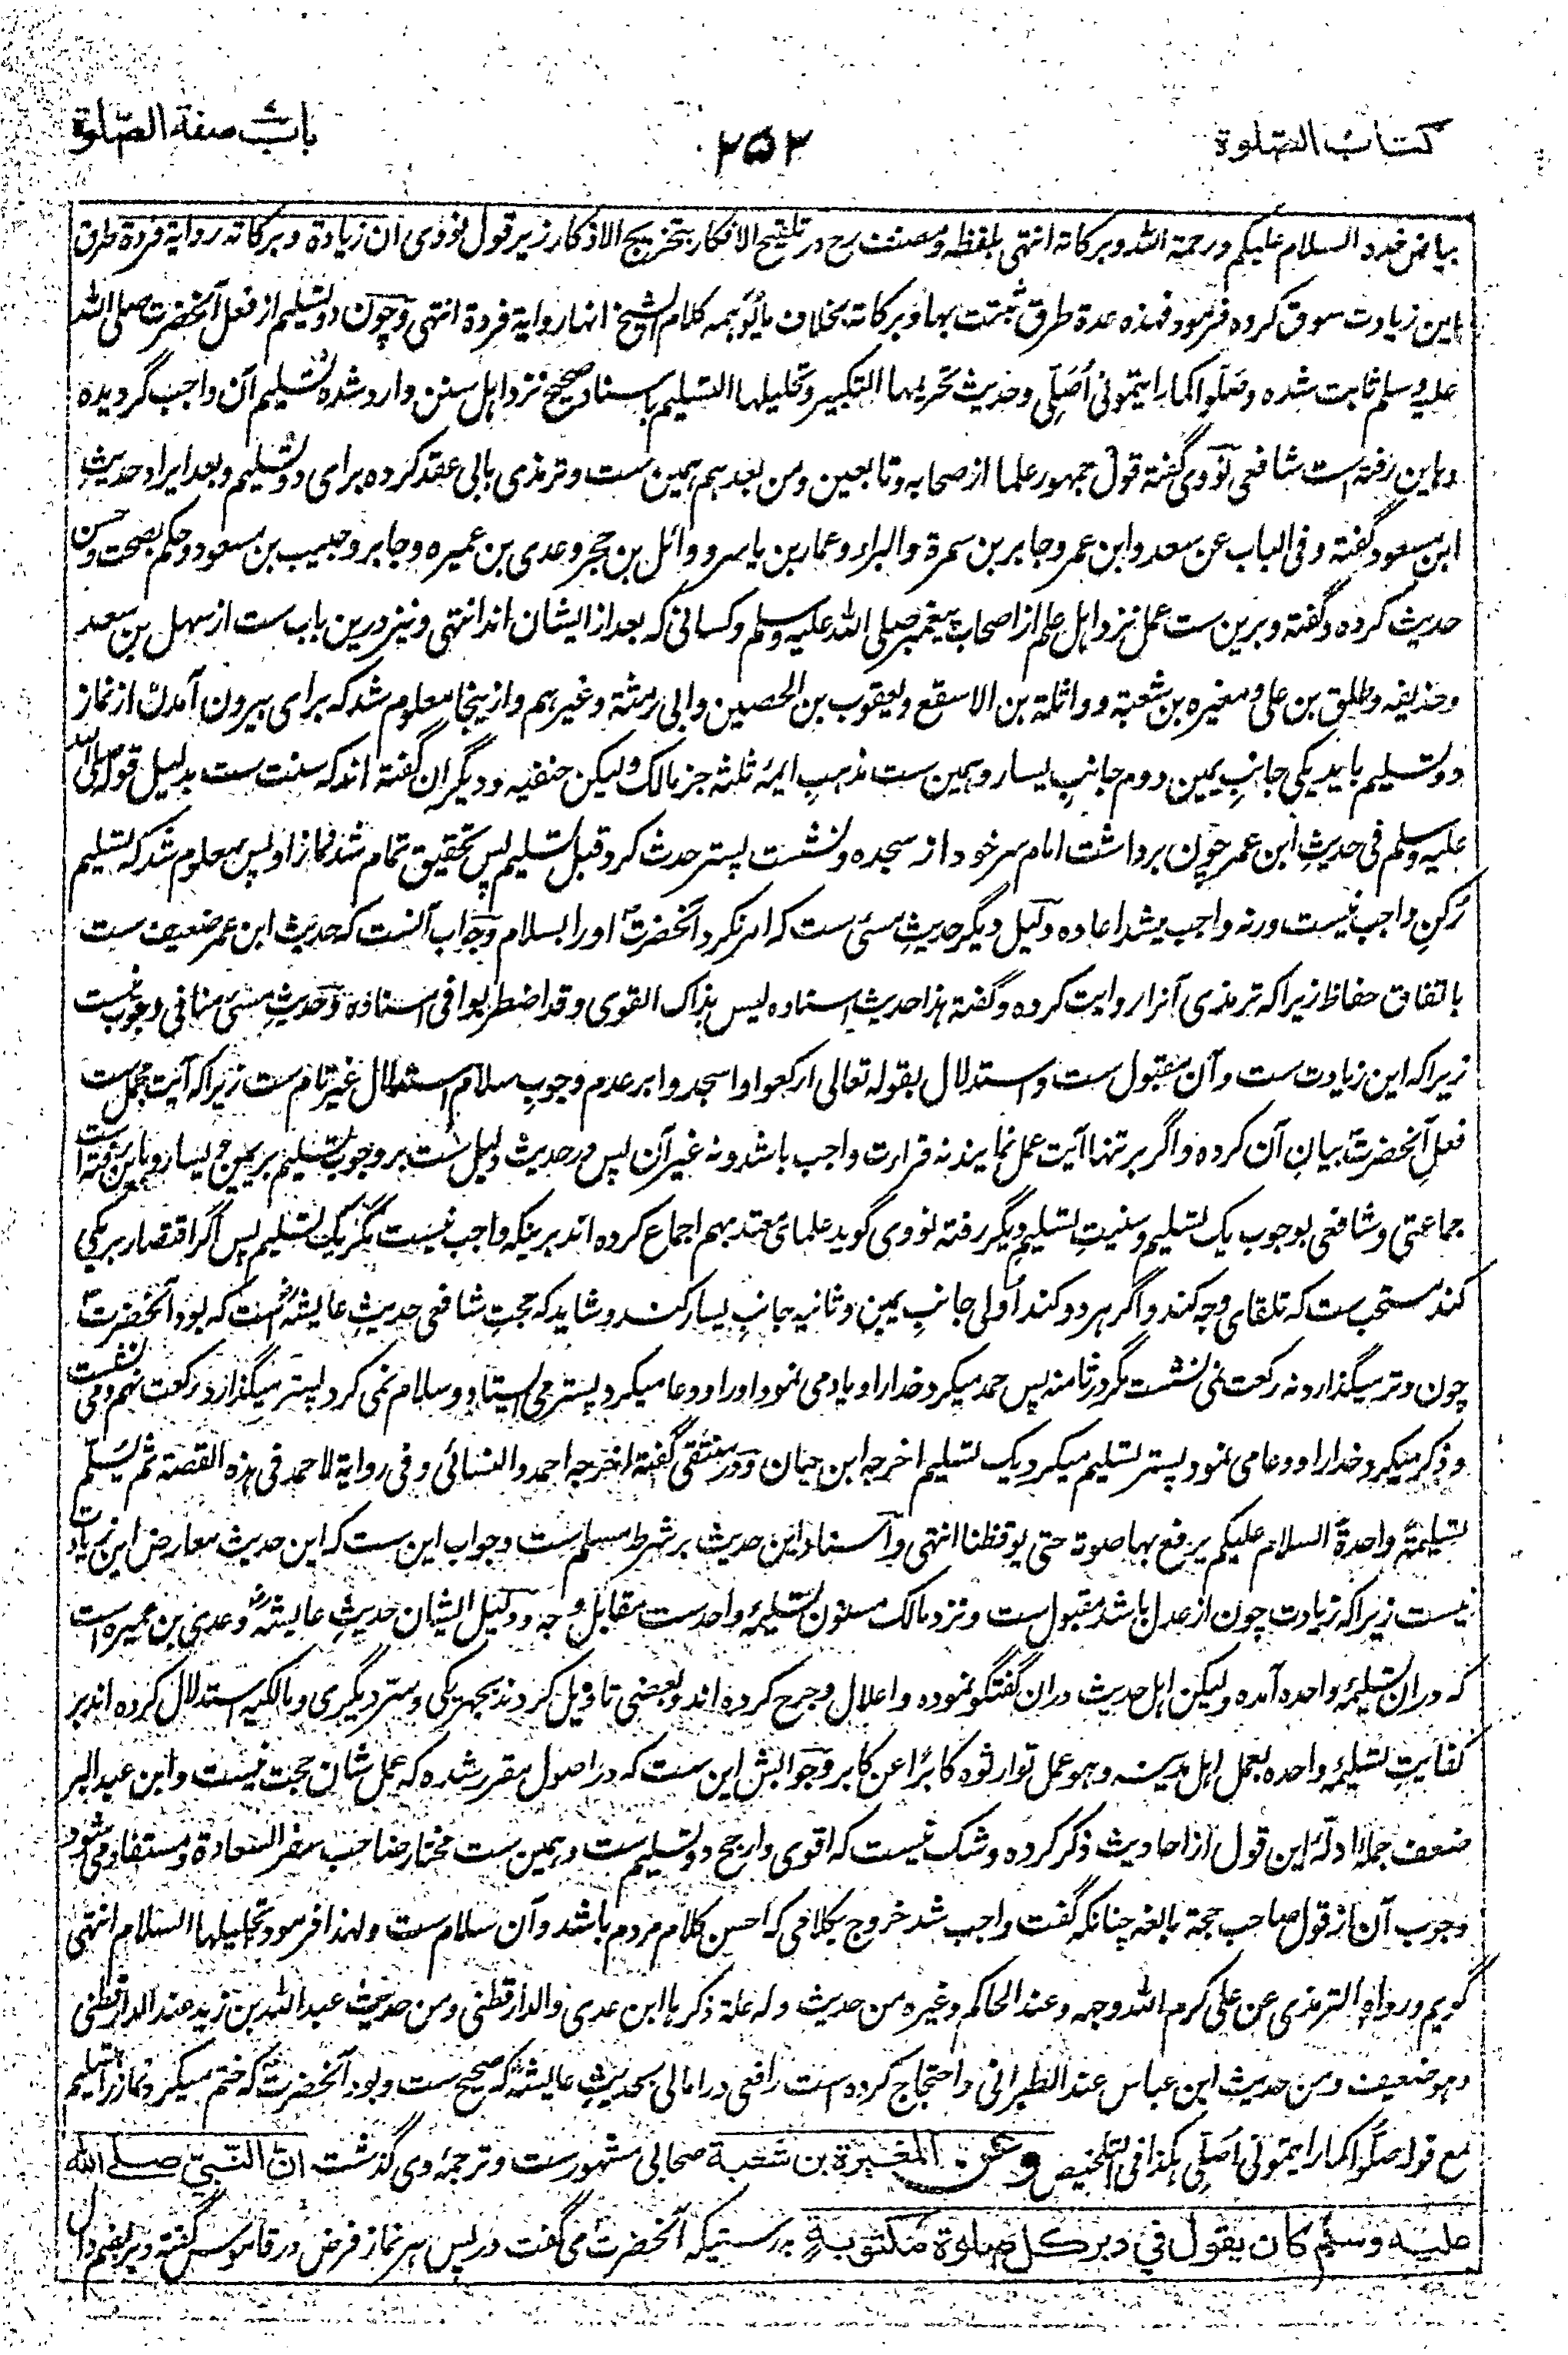 کتاب الصلوة
۲۵۲
باب صفة الصلوة
بیاض خدہ السلام علیکم ورحمة اللہ وبرکاته انتهی بلفظه ومصنف رح در تلقیح الافکار بتخریج الاذکار زیر قول نووی ان زیادة وبرکاته روایة فردة طرق
این زیادت سوق کرده فرمود فهذه عدة طرق ثبتت بها وبرکاته بخلاف ما یوهمه کلام الشیخ انها روایة فردة انتهی وچون دو تسلیم از فعل آنحضرت صلی اللہ
علیہ وسلم ثابت شده وصلوا کما رایتمونی أصلی وحدیث تحریمها التکبیر وتحلیلها التسلیم باسناد صحیح نزد اہل سنن وارد شده تسلیم آن واجب گردیده
وباین رفته است شافعی نووی گفته قول جمهور علما از صحابه وتابعین ومن بعدهم همین ست وترمذی بابی عقد کرده برای دو تسلیم وبعد ایراد حدیث
ابن مسعود گفته وفی الباب عن سعد وابن عمر وجابر بن سمرة والبراء وعمار بن یاسر ووائل بن حجر وعدی بن عمیره وجابر وحبیب بن مسعود وحکم بصحت وحسن
حدیث کرده وگفته وبرین ست عمل نزد اہل علم از اصحاب پیغمبر صلی اللہ علیہ وسلم وکسانی که بعد از ایشان اند انتهی ونیز درین باب ست از سهل بن سعد
وحذیفه وطلق بن علی ومغیره بن شعبة وواثلة بن الاسقع ویعقوب بن الحصین وابی رمثة وغیرهم وازینجا معلوم شد که برای بیرون آمدن از نماز
دو تسلیم باید یکی جانبِ یمین دوم جانبِ یسار وهمین ست مذهبِ ایمه ثلثه جز مالک ولیکن حنفیه ودیگران گفته اند که سنت ست بدلیل قوله صلی اللہ
علیہ وسلم فی حدیثِ ابن عمر چون برداشت امام سر خود از سجده ونشست پستر حدث کرد قبل تسلیم پس تحقیق تمام شد نماز او پس معلوم شد که تسلیم
رُکن واجب نیست ورنه واجب میشد اعاده دلیل دیگر حدیثِ مسئ ست که امر نکرد آنحضرت اورا بسلام وجواب آنست که حدیث ابن عمر ضعیف ست
باتفاق حفاظ زیراکه ترمذی آنرا روایت کرده وگفته هذا حدیث اسناده لیس بذاک القوی وقد اضطربوا فی اسناده وحدیثِ مسئ منافی وجوب نیست
زیراکه این زیادت ست وآن مقبول ست واستدلال بقوله تعالی ارکعوا واسجدوا بر عدم وجوبِ سلام استدلال غیر تام ست زیراکه آیت مجمل ست
فعلِ آنحضرت بیانِ آن کرده واگر بر تنها آیت عمل نمایند نه قراءت واجب باشد ونه غیر آن پس در حدیث دلیل ست بر وجوب تسلیم بر یمین ویسار وباین رفته است
جماعتی وشافعی بوجوب یک تسلیم وسنیتِ تسلیمِ دیگر رفته نووی گوید علمائ معتد بهم اجماع کرده اند برینکه واجب نیست مگر یک تسلیم پس اگر اقتصار بر یکی
کند مستحب ست که تلقای وجه کند واگر هر دو کند اولی جانبِ یمین وثانیه جانبِ یسار کند وشاید که حجتِ شافعی حدیثِ عایشه است که بود آنحضرت
چون وتر میگذارد نه رکعت نمی نشست مگر در ثامنه پس حمد میکرد خدا را ویاد می نمود اورا ودعا میکرد پستر می ایستاد وسلام نمی کرد پستر میگذارد رکعت نهم ومی نشست
وذکر میکرد خدا را ودعا می نمود پستر تسلیم میکرد یک تسلیم اخرجه ابن حبان ودر منتقی گفته اخرجه احمد والنسائی وفی روایة لاحمد فی هذه القصة ثم یسلم
تسلیمةً واحدةً السلام علیکم یرفع بها صوته حتی یوقظنا انتهی واسناد این حدیث بر شرط مسلم ست وجواب این ست که این حدیث معارض این زیادت
نیست زیراکه زیادت چون از عدل باشد مقبول ست ونزد مالک مسنون تسلیمهٔ واحد ست مقابل وجه ودلیل ایشان حدیثِ عایشه وعدی بن عمیره است
که دران تسلیمهٔ واحده آمده ولیکن اہل حدیث دران گفتگو نموده واعلال وجرح کرده اند وبعضی تاویل کردند بجهر یکی وستر دیگری ومالکیه استدلال کرده اند بر
کفایتِ تسلیمهٔ واحده بعمل اہل مدینه وهو عمل توارثوه کابرًا عن کابر وجوابش این ست که در اصول مقرر شده که عمل شان حجت نیست وابن عبد البر
ضعف جملهٔ ادلّهٔ این قول از احادیث ذکر کرده وشک نیست که اقوی وارجح دو تسلیم ست وهمین ست مختار صاحب سفر السعادة ومستفاد می شود
وجوب آن از قول صاحب حجة بالغه چنانکه گفت واجب شد خروج بکلامی که احسن کلام مردم باشد وآن سلام ست ولهذا فرمود تحلیلها السلام انتهی
گویم ورواه الترمذی عن علی کرم اللہ وجهه وعند الحاکم وغیره من حدیث وله علة ذکرها ابن عدی والدارقطنی ومن حدیث عبد اللہ بن زید عند الدارقطنی
وهو ضعیف ومن حدیثِ ابن عباس عند الطبرانی واحتجاج کرده است رافعی در امالی بحدیثِ عایشه که صحیح ست وبود آنحضرت که ختم میکرد نماز را بتسلیم
مع قوله صلّوا کما رایتمونی أصلی هکذا فی التلخیص وعن المغیرة بن شعبة صحابی مشهور ست وترجمهٔ وی گذشت انّ النّبیّ صلے اللہ
علیه وسلم کان یقول فی دبر کل صلوة مکتوبةٍ بدرستیکه آنحضرت می گفت در پس هر نماز فرض در قاموس گفته دبر بضم دال